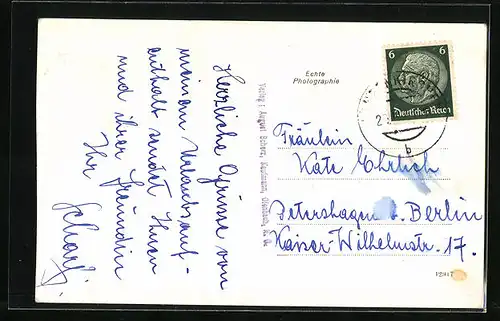 Herzliche Grüsse von
meinem Urlaubsauf-
enthalt sendet Ihnen
und ihrer Freundin
Ihr
Scharf.
Echte
Photographie
Verlag: August
6 6
Deutsches Reich
b
Fräulein
Kate Ehrlich
Petershagen b. Berlin
Kaiser-Wilhelmstr. 17.